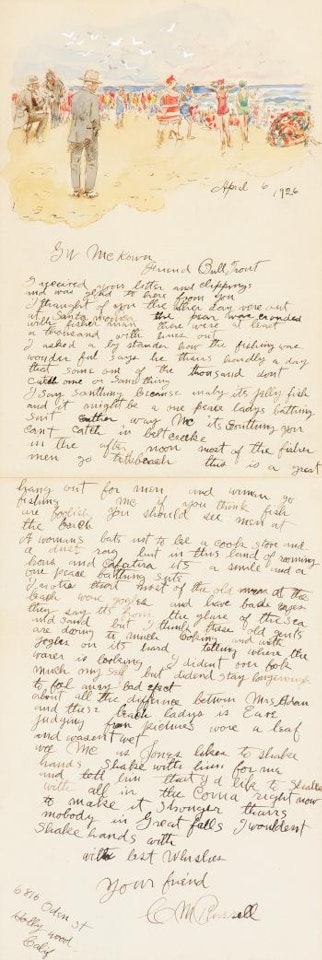 April 6 1926
G W McKown
Friend Bull Trout
I receved your letter and clippings
and was glad to here from you
I thought of you the other day wore out
at Santa monica the pear were crouded
with fisher man there were at least
a thousand with lines out
I asked a by stander how the fishing was
wonder ful says he thairs hardly a day
that some one of the thousand dont
catch one or somthing
I say somthing because maby its jelly fish
and it might be a one peace ladys bathing
suit either way Mc its somthing you
cant catch in belt creeke
in the after noon most of the fisher
men go to the beach this is a great
hang out for men and woman go
fishing Mc if you think fish
are foolish you should see men at
the beach
A womans bate ust to be a cook stove and
a dust rag but in this land of roming
hons and cafatira its a smile and a
one peace bathing sute
I notice that most of the old men at the
beach wore gogles and have bad eyes
they say its from the glare of the sea
and sand but I think these old gents
are doing to much looking and with
gogles on its hard telling where the
warer is looking I dident over look
much my self but didend stay long enough
to get any bad effect
about all the difference betwen Mrs
and these beach ladys is Eave
judging from pictures wore a leaf
and wasent wet
well Mc as Jones likes to shake
hands shake with him for me
and tell him that I'd like to shake
with all in the right now
to make it stronger thairs
nobody in Great falls I wouldent
shake hands with
with best whishes
your friend
C M Russell
6816 Oden st
Holly wood
Calif